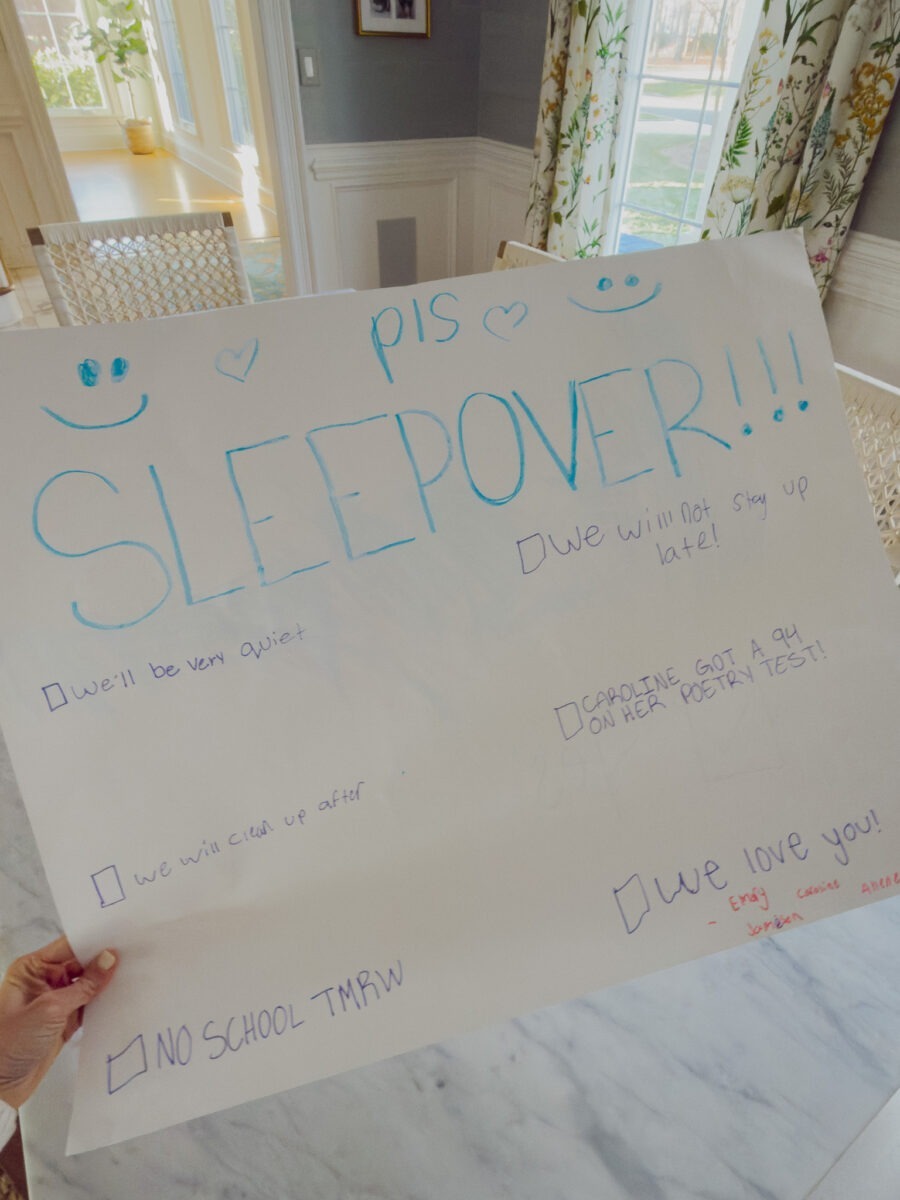 pls
SLEEPOVER!!!
We will not stay up
late!
We'll be very quiet
CAROLINE GOT A 94
ON HER POETRY TEST!
we will clean up after
We love you!
- Emily Caroline
NO SCHOOL TMRW